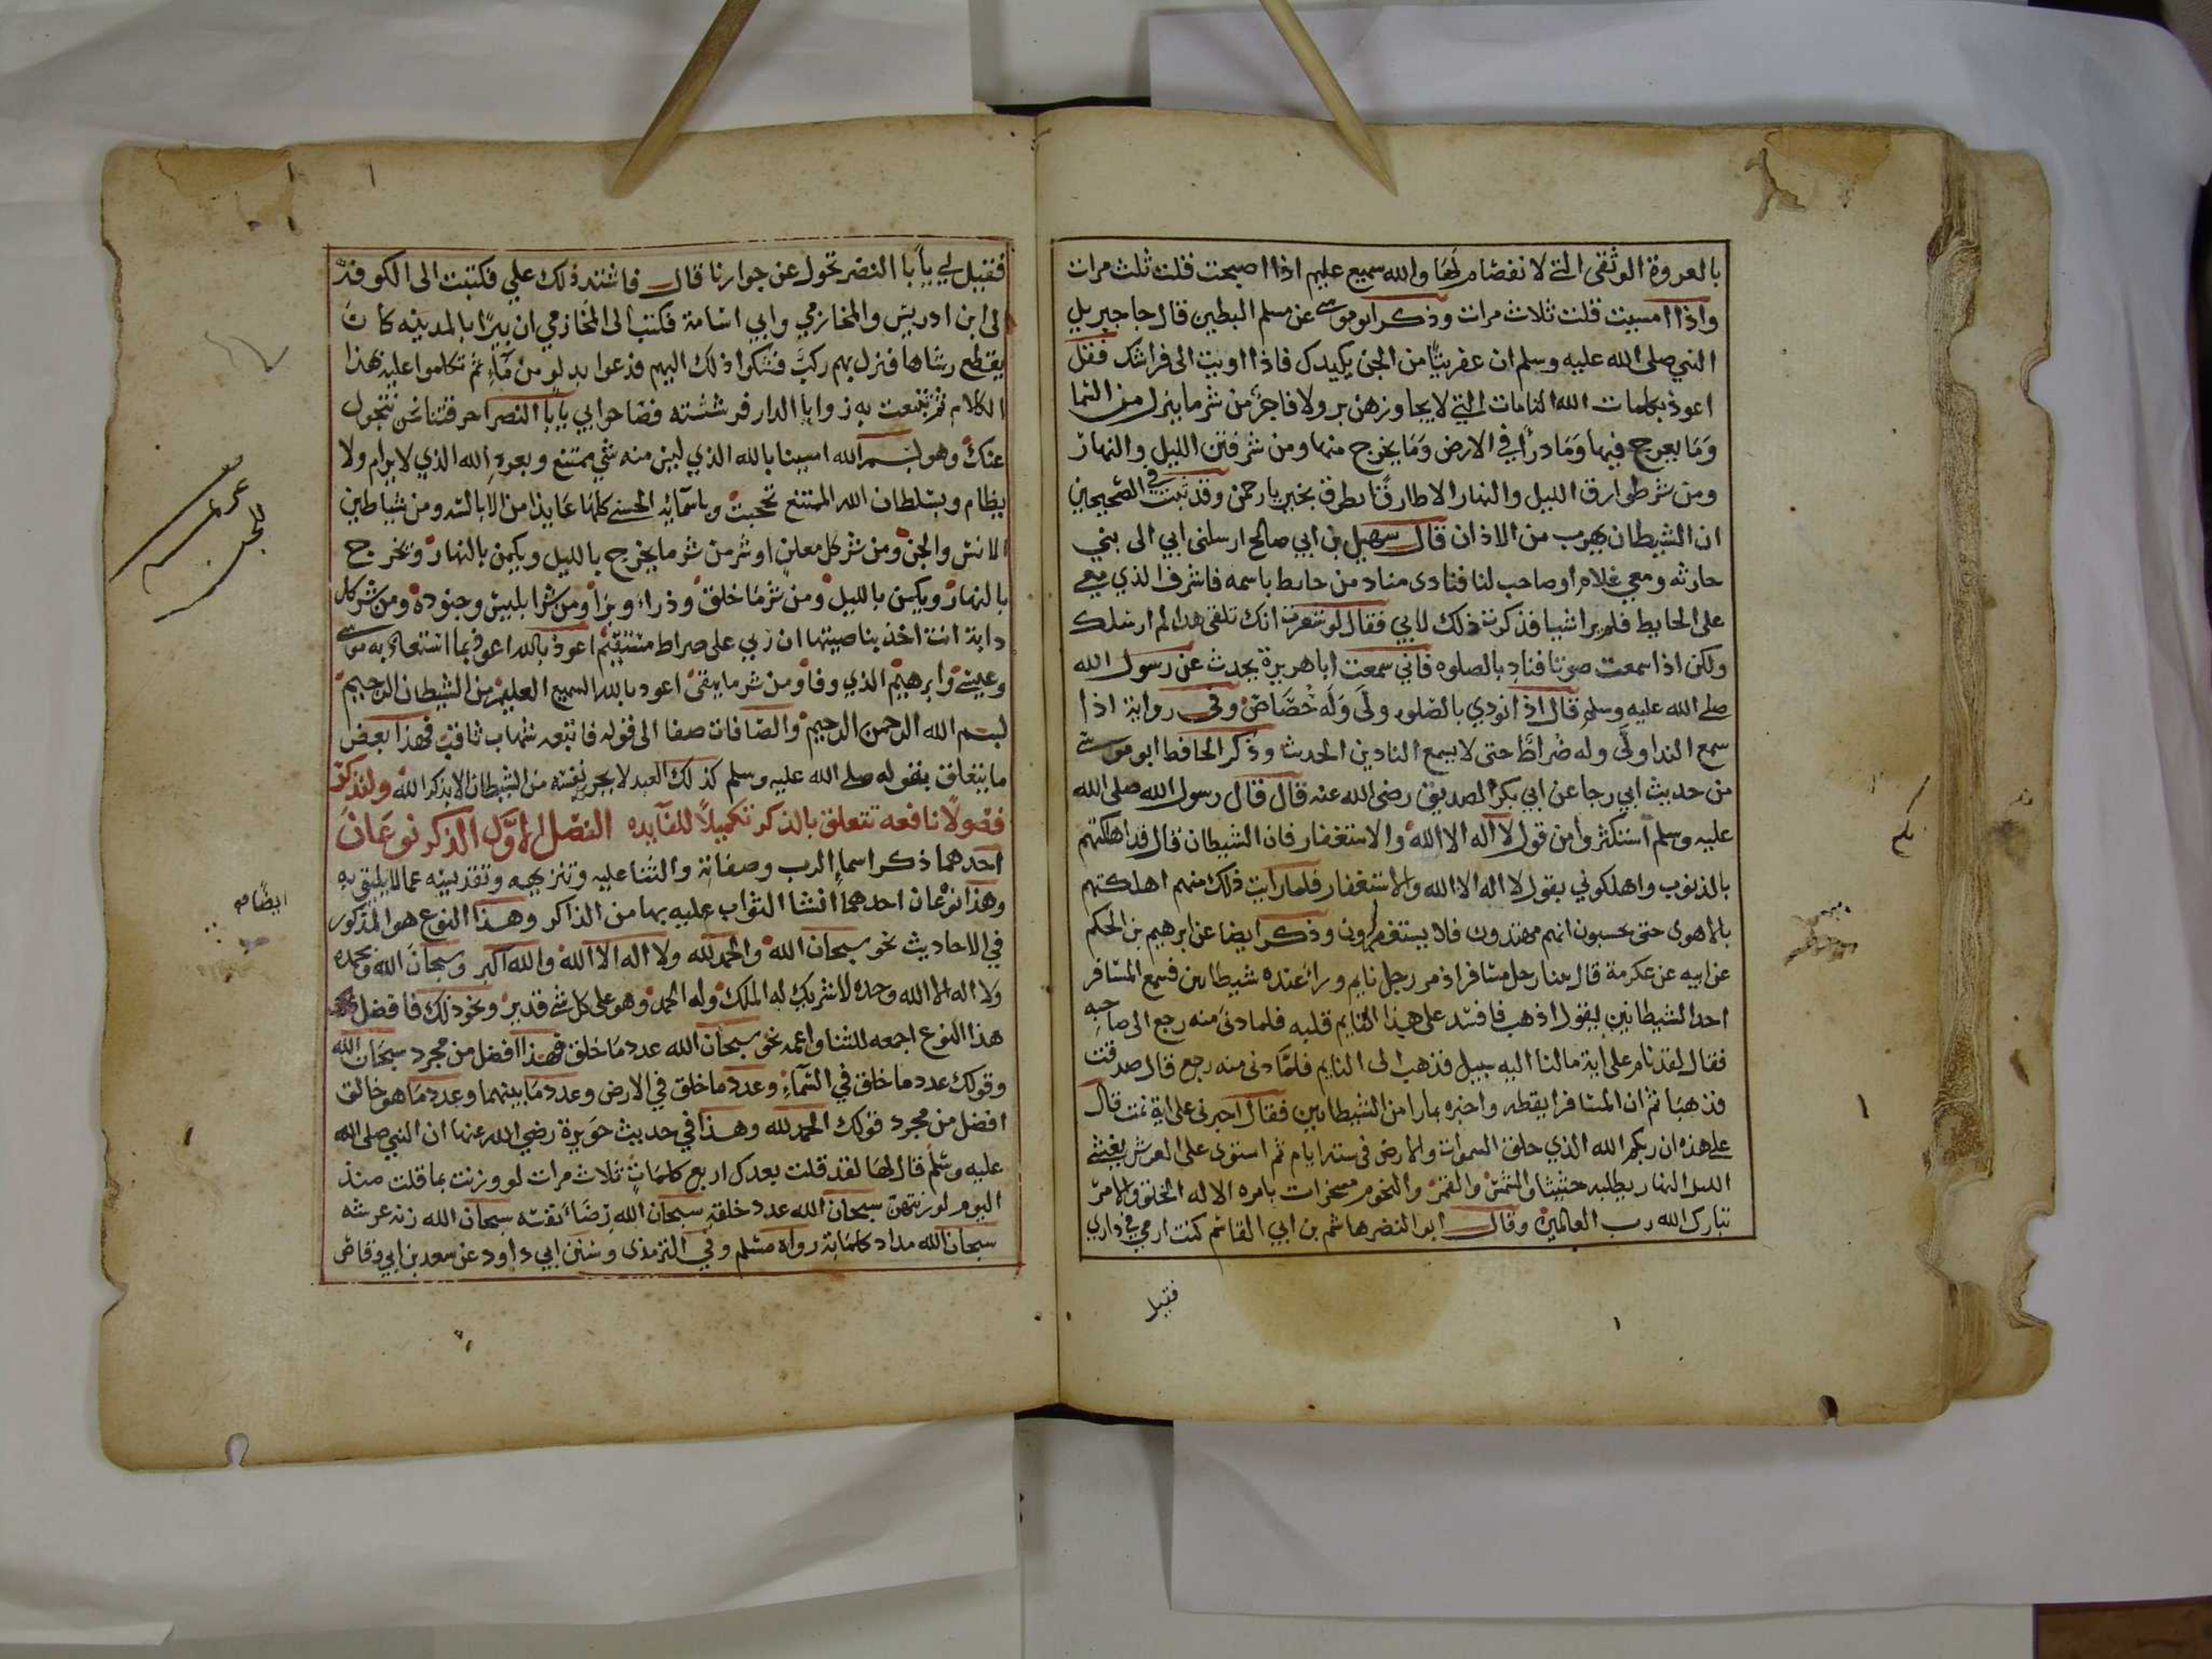 بالعروة الوثقى التي لا نفصام لها والله سميع عليم اذا اصبحت قلت ثلث مرات
واذا امسيت قلت ثلاث مرات وذكر ابو موسى عن مسلم البطين قال جا جبريل
النبي صلى الله عليه وسلم ان عفريتًا من الجن يكيدك فاذا اويت الى فراشك فقل
اعوذ بكلمات الله التامات التي لا يجاوزهن بر ولا فاجر من شر ما ينزل من السما
وما يعرج فيها وما درأ في الارض وما يخرج منها ومن شر فتن الليل والنهار
ومن شر طوارق الليل والنهار الا طارقًا يطرق بخير يا رحمن وقد ثبت في الصحيحين
ان الشيطان يهرب من الاذان قال سهيل بن ابي صالح ارسلنى ابي الى بني
حارثه ومعي غلام او صاحب لنا فنادى مناد من حايط باسمه فاشرف الذي معي
على الحايط فلم ير اشيا فذكرت ذلك لابي فقال لو شعرت انك تلقى هذا لم ارسلك
ولكن اذا سمعت صوتا فناد بالصلوه فاني سمعت اباهريرة يحدث عن رسول الله
صلى الله عليه وسلم قال اذا نودي بالصلوه ولى وله خُصَاصٌ وفى رواية اذا
سمع الندا ولَّى وله ضراطٌ حتى لا يسمع النادين الحدث وذكر الحافظ ابو موسى
من حديث ابي رجا عن ابي بكر الصديق رضى الله عنه قال قال رسول الله صلى الله
عليه وسلم استكثروا من قول لا اله الا الله والاستغفار فان الشيطان قال قد اهلكتهم
بالذنوب واهلكوني بقول لا اله الا الله والاستغفار فلما رايت ذلك منهم اهلكتهم
بالاهوى حتى يحسبون انهم مهتدون فلا يستغفرون وذكر ايضا عن ابرهيم بن الحكم
عن ابيه عن عكرمة قال بينا رجل مسافر اذ مر رجل نايم وراى عنده شيطانين فسمع المسافر
احد الشيطانين يقول اذهب فافسد على هذا النايم قلبه فلما دنى منه رجع الى صاحبه
فقال لقد نام على اية ما لنا اليه سبيل فذهب الى النايم فلمّا دنى منه رجع قال صدقت
فذهبا ثم ان المسافر ايقظه واخبره بما را من الشيطانين فقال اخبرنى على اية نمت قال
على هذه ان ربكم الله الذي خلق السموات والارض فى ستة ايام ثم استوى على العرش يغشي
الليل النهار يطلبه حثيثا والشمس والقمر والنجوم مسخرات بامره الا له الخلق والامر
تبارك الله رب العالمين وقال ابو النضر هاشم بن ابي القاسم كنت ارمي في داري
فقيل
فقيل لي يا با النضر تحول عن جوارنا قال فاشتد ذلك علي فكتبت الى الكوفة
لى ابن ادريس والمخازمي وابي اسامة فكتب الى المخازمي ان بيرًا بالمدينه كانت
يقطع رشاها فنزل بهم ركب فشكوا ذلك اليهم فدعوا بدلو من ماء ثم تكلموا عليه بهذا
الكلام ثم تتبعت به زوايا الدار فرششته فصاحوا بي يا با النضر احرقتنا نحن نتحول
عنك وهو بسم الله امسينا بالله الذي ليس منه شي يمتنع وبعزة الله الذي لا يرام ولا
يظام وبسلطان الله الممتنع تحجبت وباسمائه الحسنى كلها عايذا من الابالسه ومن شياطين
الانس والجن ومن شر كل معلن او شر من شر ما يخرج بالليل ويكمن بالنهار ويخرج
بالنهار ويكمن بالليل ومن شر ما خلق وذراء وبرأ ومن شر ابليس وجنوده ومن شر كل
دابة انت اخذ بناصيتها ان ربي على صراط مستقيم اعوذ بالله اعوذ بما استعاذ به موسى
وعيسى وابرهيم الذي وفا ومن شر ما يبقى اعود بالله السميع العليم من الشيطان الرجيم
بسم الله الرحمن الرحيم والصافات صفا الى قوله فاتبعه شهاب ثاقب فهذا بعض
ما يتعلق بقوله صلى الله عليه وسلم كذلك العبد لا يحرز نفسه من الشيطان الا بذكر الله ولنذكر
فصولًا نافعه تتعلق بالذكر تكميلًا للفايده الفصل الاول الذكر نوعان
احدهما ذكر اسماء الرب وصفاته والثنا عليه وتنزيهه وتقديسه عما لا يليق به
وهذا نوعان احدهما انشا الثواب عليه بها من الذاكر وهذا النوع هو المذكور
في الاحاديث نحو سبحان الله والحمد لله ولا اله الا الله والله اكبر وسبحان الله وبحمده
ولا اله الا الله وحده لا شريك له له الملك وله الحمد وهو على كل شي قدير ونحو ذلك فافضل
هذا النوع اجمعه للثنا واعمه نحو سبحان الله عدد ما خلق فهذا افضل من مجرد سبحان الله
وقولك عدد ما خلق في السماء وعدد ما خلق في الارض وعدد ما بينهما وعدد ما هو خالق
افضل من مجرد قولك الحمد لله وهذا في حديث جويرة رضي الله عنها ان النبي صلى الله
عليه وسلم قال لها لقد قلت بعدك اربع كلمات ثلاث مرات لو وزنت بما قلت منذ
اليوم لوزنتهن سبحان الله عدد خلقه سبحان الله رضاء نفسه سبحان الله زنه عرشه
سبحان الله مداد كلماته رواه مسلم وفي الترمذي وسنن ابي داود عن سعد بن ابي وقاص
للجن
ايضًا